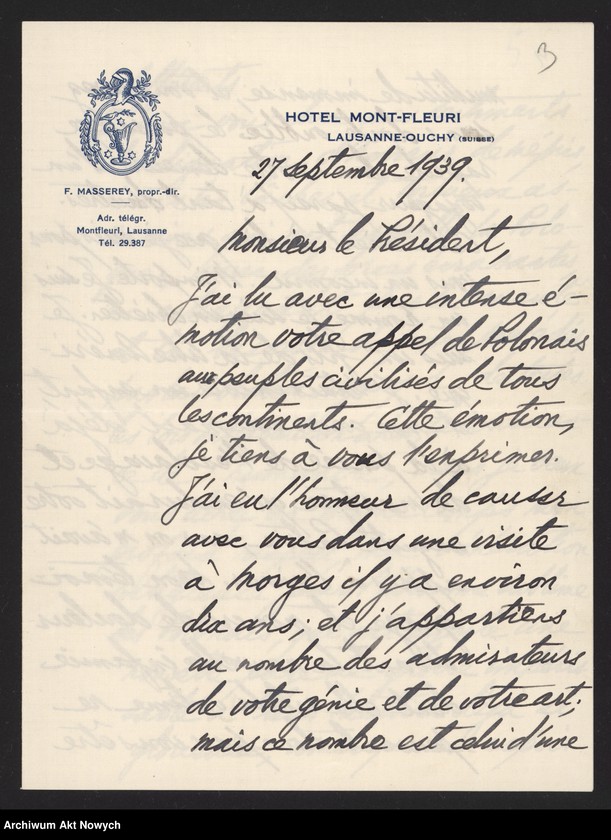 3
HOTEL MONT-FLEURI
LAUSANNE-OUCHY (SUISSE)
F. MASSEREY, propr.-dir.
Adr. télégr.
Montfleuri, Lausanne
Tél. 29.387
27 septembre 1939.
Monsieur le Président,
J'ai lu avec une intense é-
motion votre appel de Polonais
aux peuples civilisés de tous
les continents. Cette émotion,
je tiens à vous l'exprimer.
J'ai eu l'honneur de causer
avec vous dans une visite
à Morges il y a environ
dix ans; et j'appartiens
au nombre des admirateurs
de votre génie et de votre art;
mais ce nombre est celui d'une
Archiwum Akt Nowych